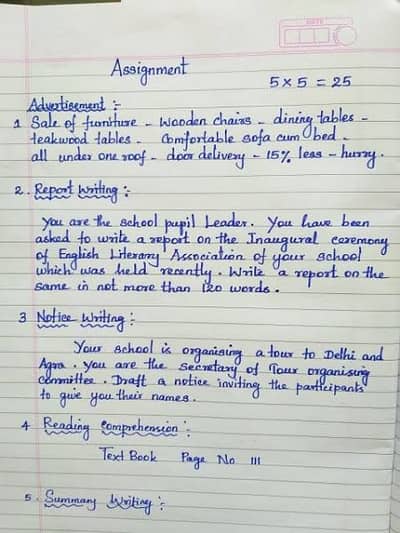 DATE
Assignment
5 x 5 = 25
Advertisement :-
1 Sale of furniture - wooden chairs - dining tables -
teakwood tables - Comfortable sofa cum bed -
all under one roof - door delivery - 15% less - hurry.
2. Report Writing :-
You are the school pupil Leader. You have been
asked to write a report on the Inaugural ceremony
of English Literary Association of your school
which was held recently. Write a report on the
same in not more than 120 words.
3 Notice Writing :-
Your school is organising a tour to Delhi and
Agra. You are the Secretary of Tour organising
committee. Draft a notice inviting the participants
to give you their names.
4 Reading Comprehension :-
Text Book Page No 111
5. Summary Writing :-